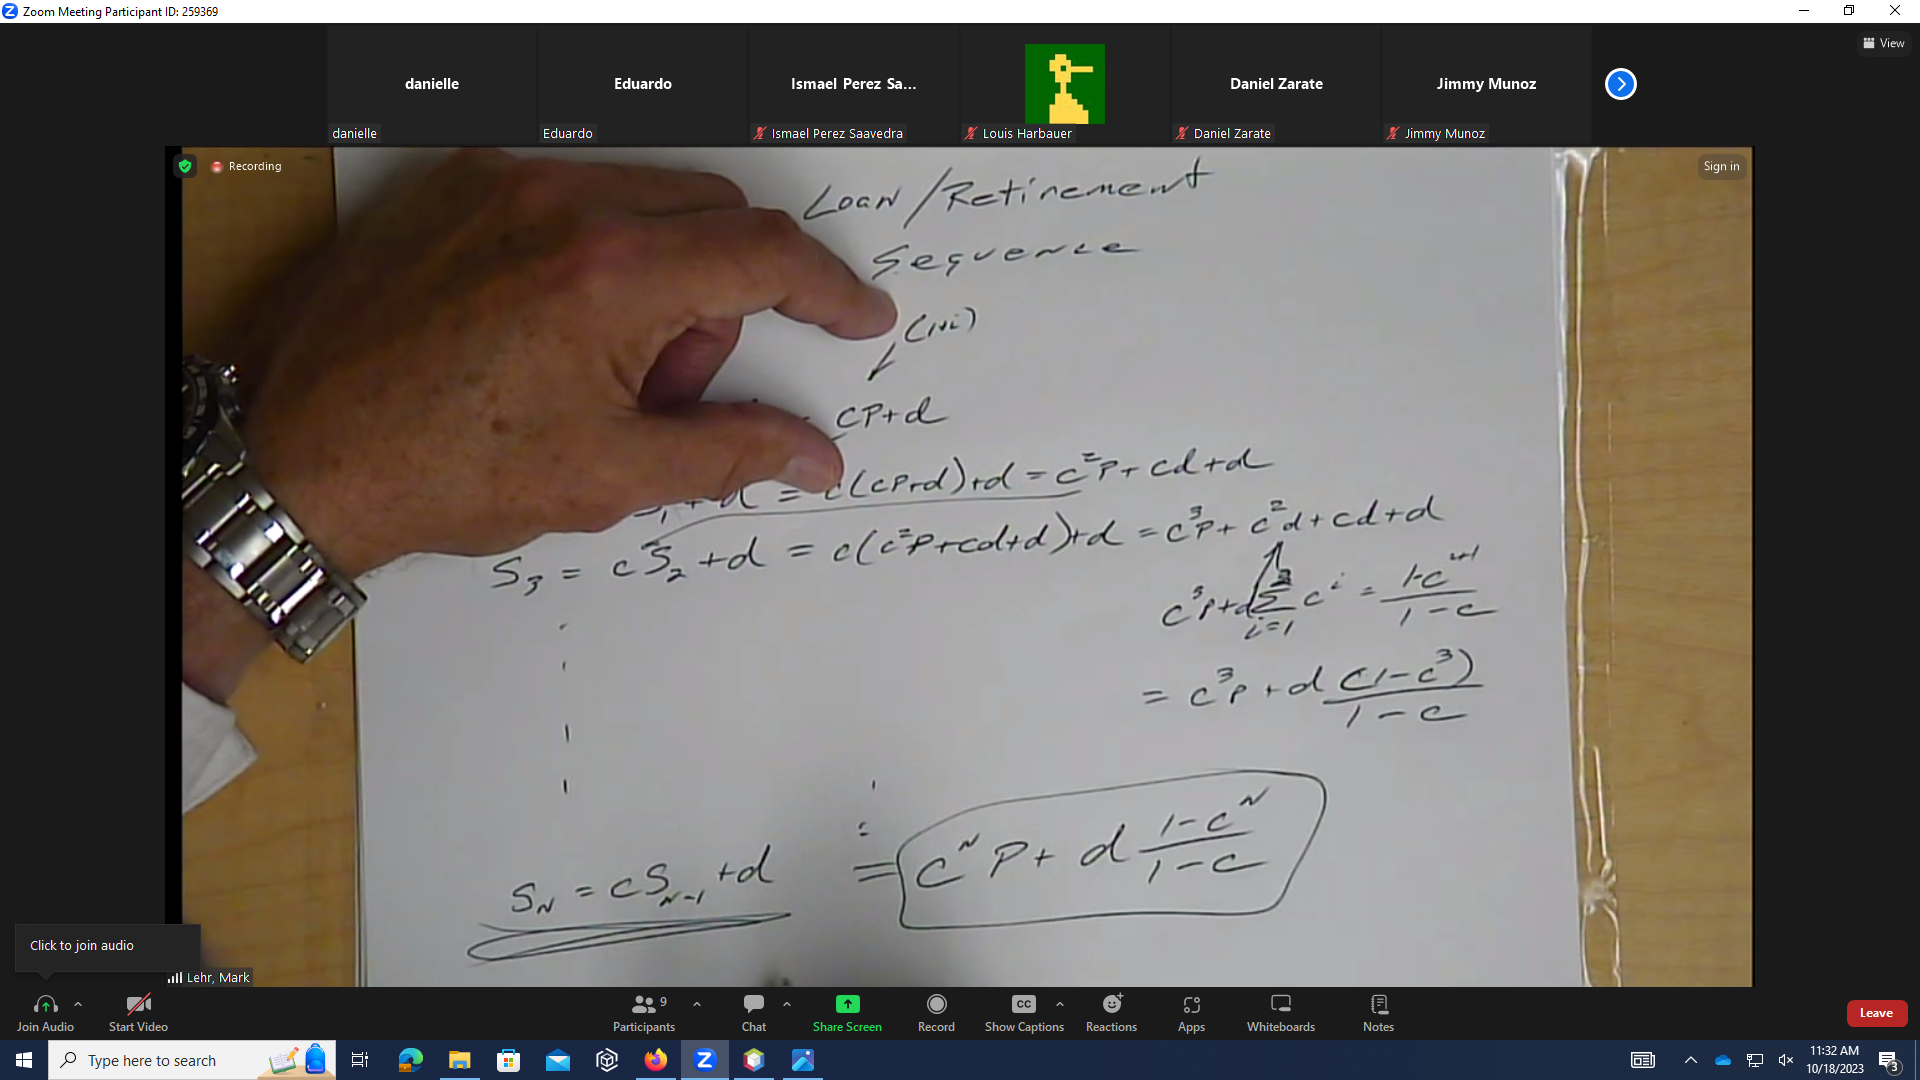 Zoom Meeting Participant ID: 259369
View
danielle
Eduardo
Ismael Perez Sa...
Daniel Zarate
Jimmy Munoz
danielle
Eduardo
Ismael Perez Saavedra
Louis Harbauer
Daniel Zarate
Jimmy Munoz
Recording
Sign in
Loan/Retirement
Sequence
(1+i)
= cP+d
S₁+d = c(cP+d)+d = c²P+cd+d
S₃ = cS₂+d = c(c²P+cd+d)+d = c³P+c²d+cd+d
c³P+d Σ i=1 cⁱ = 1-cⁿ⁺¹ / 1-c
= c³P+d (1-c³) / 1-c
S_N = cS_N-1 +d = c^N P+d 1-c^N / 1-c
Click to join audio
Lehr, Mark
Join Audio
Start Video
Participants 9
Chat
Share Screen
Record
CC
Show Captions
Reactions
Apps
Whiteboards
Notes
Leave
Type here to search
11:32 AM
10/18/2023
3